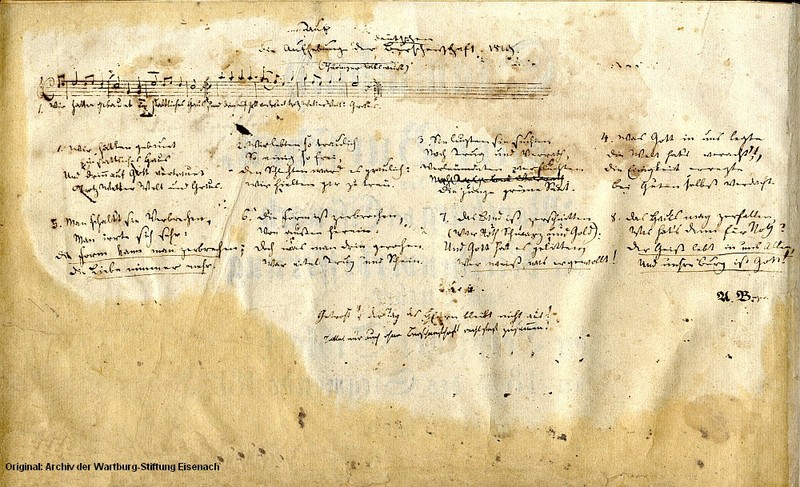 Auf
deutschen
die Aufhebung der Burschenschaft. 1819.
(Thüringer Volksweise)
1. Wir hatten gebauet Ein stattliches Haus Und drin auf Gott vertrauet trotz Wetter Welt und Graus.
1. Wir hatten gebauet
Ein stattliches Haus
Und drin auf Gott vertrauet
Trotz Wetter Welt und Graus.
2. Wir lebten so traulich
So einig so frei,
Den Schlechten ward es graulich:
Wir hielten gar zu treu.
3. Sie lugten sie suchten
Nach Trug und Verrath,
Verleumdeten verfluchten
Die junge grüne Saat.
4. Was Gott in uns legte
die Welt hats veracht't,
die Einigkeit erregte
bei Guten selbst Verdacht.
5. Man schalt es Verbrechen,
Man irrte sich sehr:
die Form kann man zerbrechen;
die Liebe nimmer mehr.
6. Die Form ist zerbrochen,
Von außen herein.
Doch was man drin gerochen
War eitel Trug und Schein.
7. Das Band ist zerschnitten
(War Roth, Schwarz und Gold).
Und Gott hat es gelitten
Wer weiß, was er gewollt!
8. Das Haus mag zerfallen,
Was hats denn für Noth?
Der Geist lebt in uns Allen
Und unsre Burg ist Gott!
A. B.
Getrost! der Tag des Herrn bleibt nicht aus!
Haltet nur auch ohne Burschenschaft recht fest zusammen!
Original: Archiv der Wartburg-Stiftung Eisenach